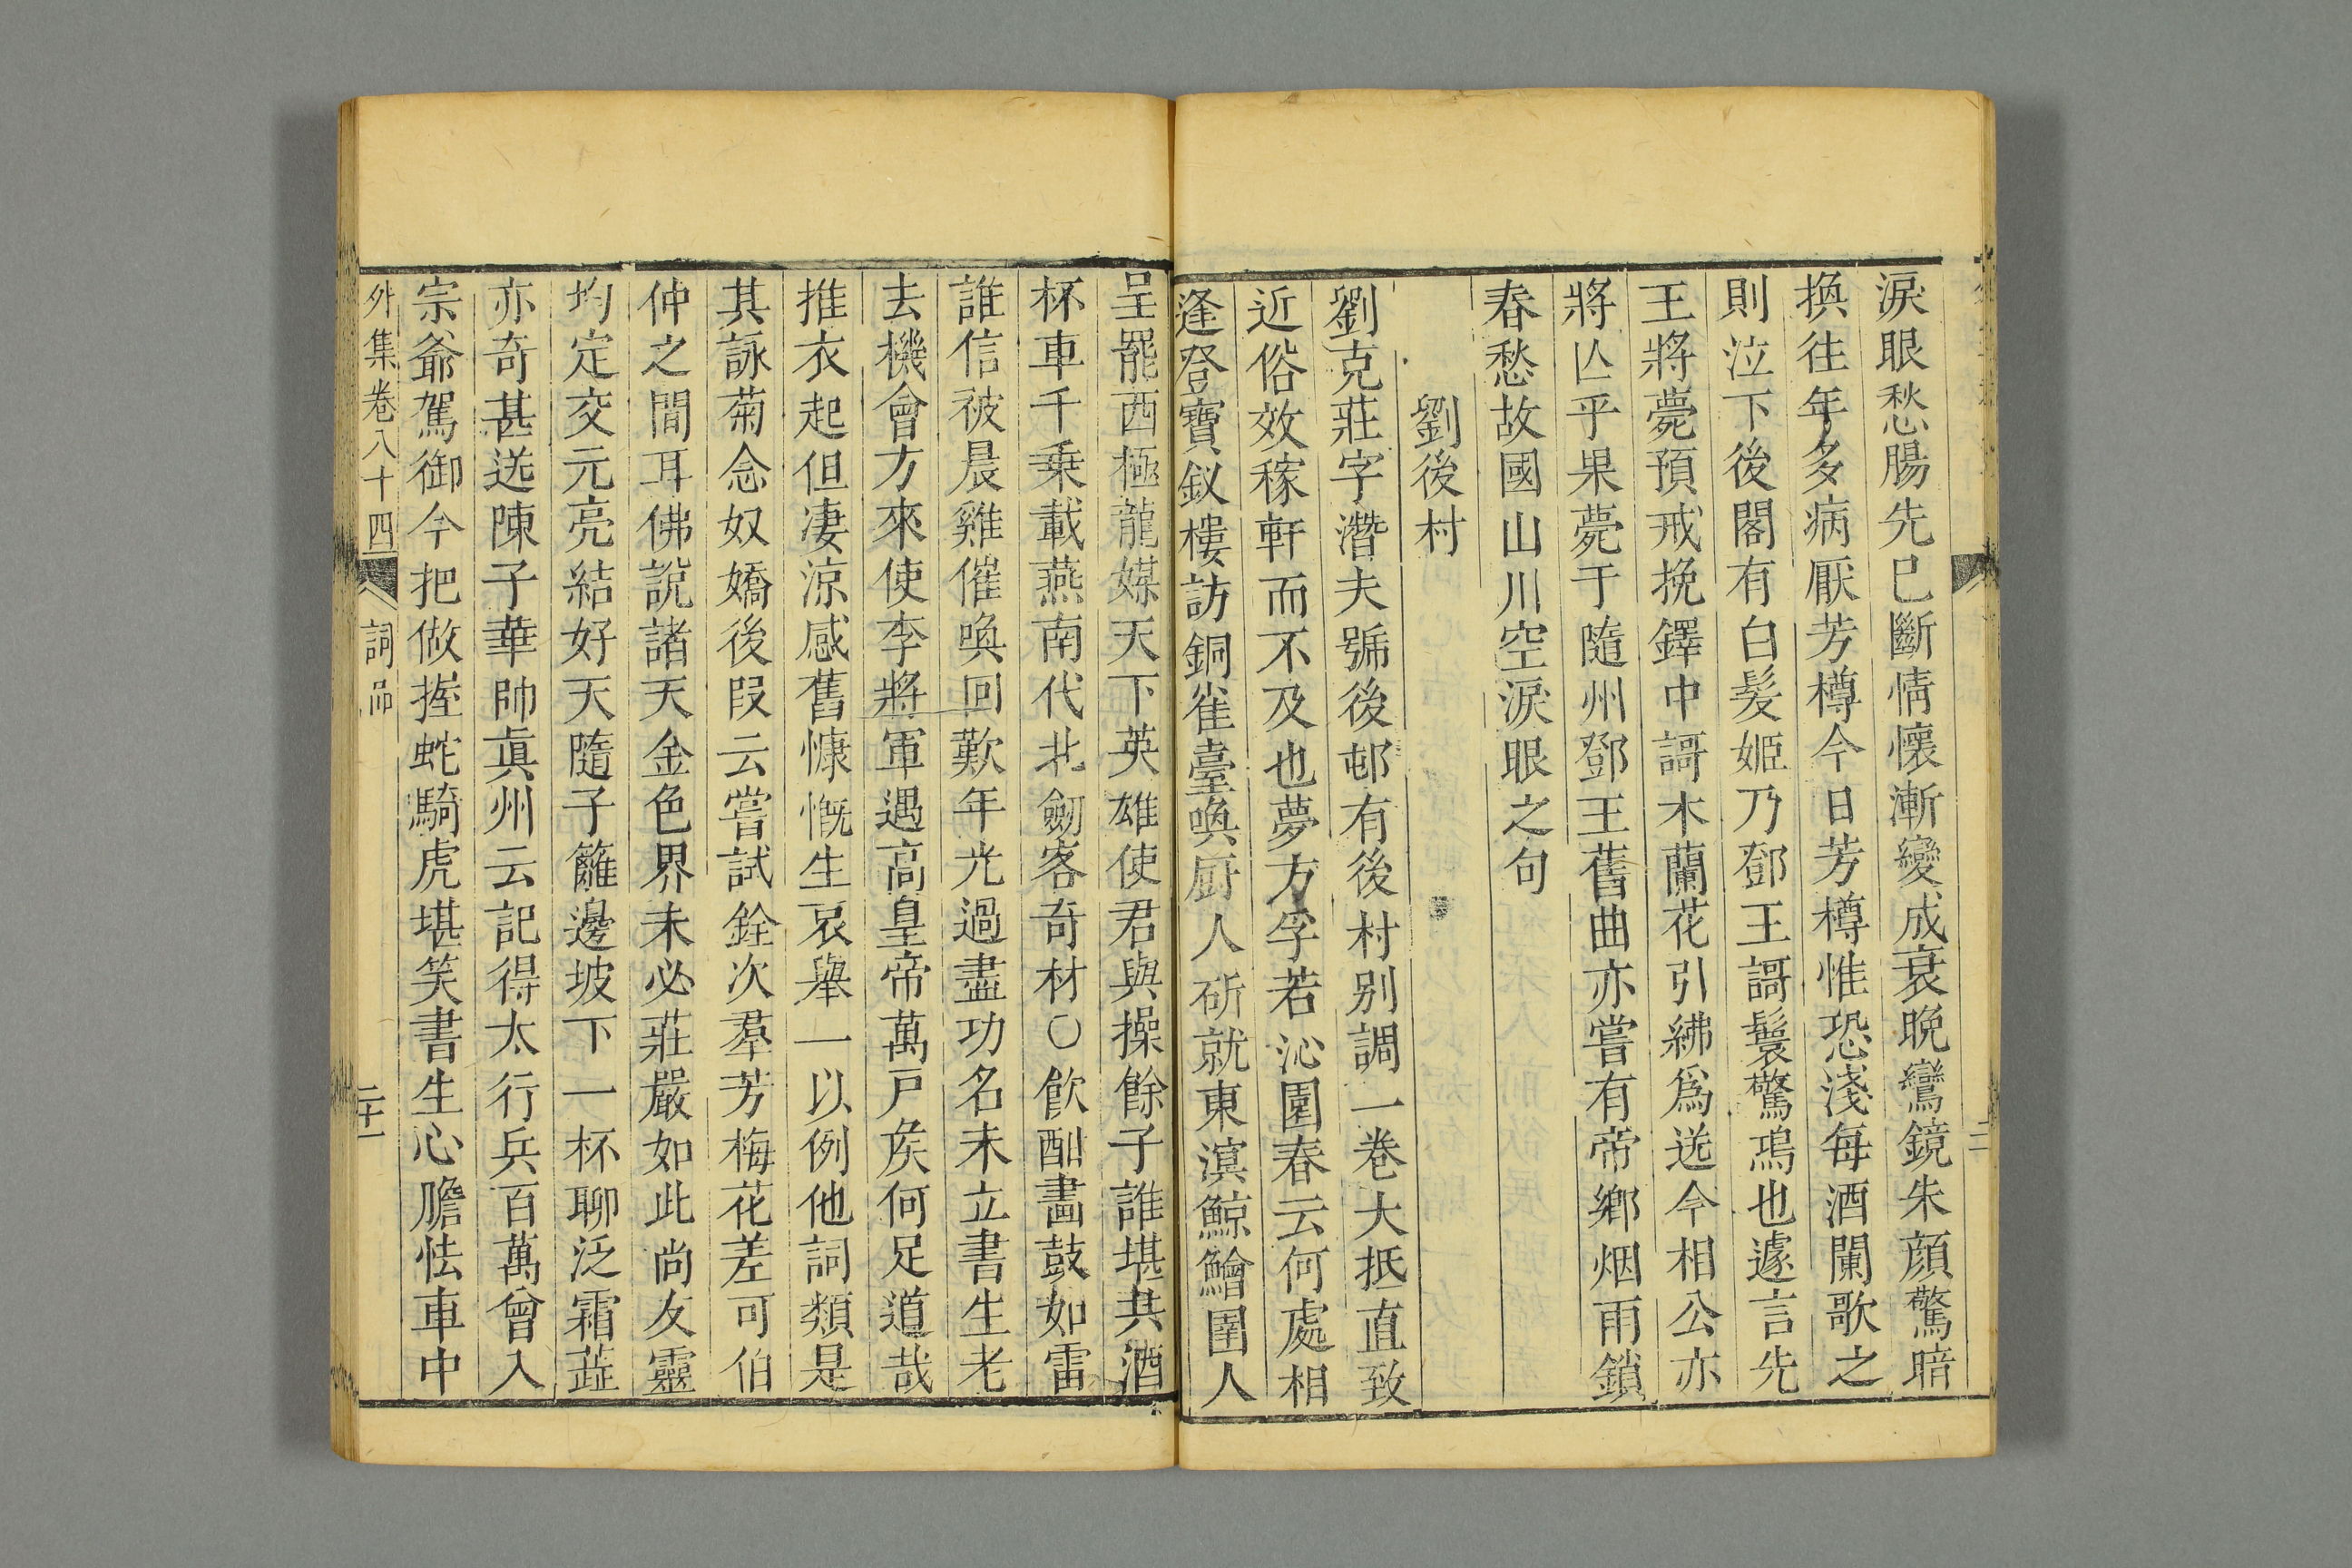 淚眼愁腸先已斷情懷漸變成衰晚鸞鏡朱顏驚暗
換往年多病厭芳樽今日芳樽惟恐淺每酒闌歌之
則泣下後閣有白髮姬乃鄧王謌鬟驚鴻也遽言先
王將薨預戒挽鐸中謌木蘭花引紼爲送今相公亦
將亾乎果薨于隨州鄧王舊曲亦嘗有帝鄉烟雨鎖
春愁故國山川空淚眼之句
劉後村
劉克莊字潛夫號後邨有後村別調一卷大抵直致
近俗效稼軒而不及也夢方孚若沁園春云何處相
逢登寶釵樓訪銅雀臺喚厨人斫就東溟鯨鱠圉人
呈罷西極龍媒天下英雄使君與操餘子誰堪共酒
杯車千乗載燕南代北劒客奇材○飲酣畵鼓如雷
誰信被晨雞催喚回歎年光過盡功名未立書生老
去機會方來使李將軍遇高皇帝萬戸矦何足道哉
推衣起但凄涼感舊慷慨生哀舉一以例他詞類是
其詠菊念奴嬌後叚云嘗試銓次羣芳梅花差可伯
仲之間耳佛説諸天金色界未必莊嚴如此尚友靈
均定交元亮結好天隨子籬邊坡下一杯聊泛霜蕋
亦奇甚送陳子華帥眞州云記得太行兵百萬曾入
宗爺駕御今把做握蛇騎虎堪笑書生心膽怯車中
外集卷八十四 詞品 二十一